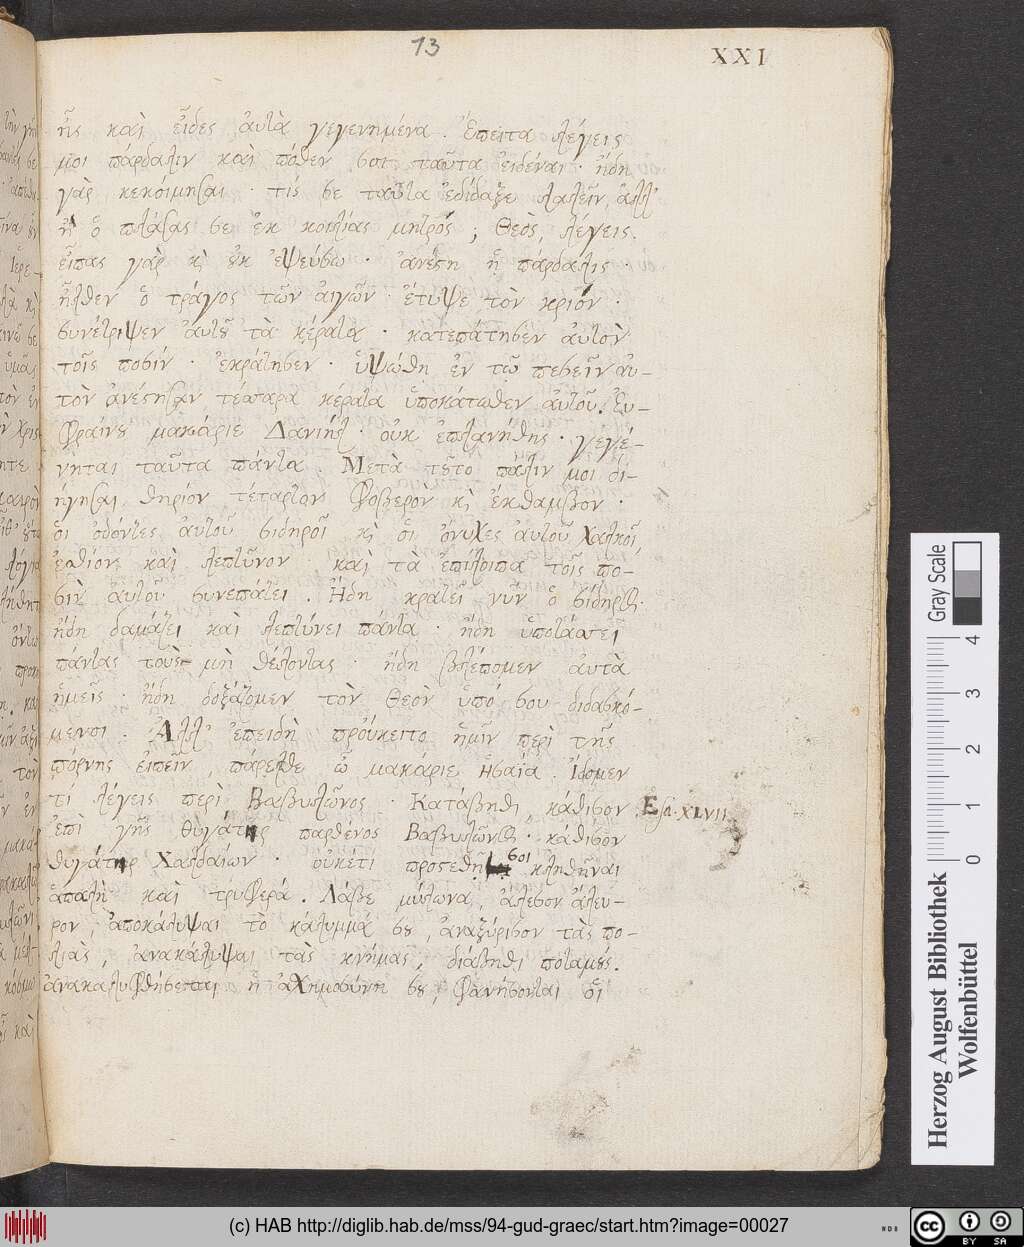 13
XXI
ῆς καὶ εἶδες αὐτὰ γεγενημένα. Ἔπειτα λέγεις
μοι πάρδαλιν καὶ πόθεν σοι ταῦτα εἰδέναι· ἤδη
γὰρ κεκοίμησαι · τίς σε ταῦτα ἐδίδαξε λαλεῖν, ἀλλ'
ἢ ὁ πλάσας σε ἐκ κοιλίας μητρός; Θεὸς, λέγεις.
εἶπας γὰρ κὶ οὐκ ἐψεύσω · ἀνέστη ἡ πάρδαλις ·
ἦλθεν ὁ τράγος τῶν αἰγῶν · ἔτυψε τὸν κριόν ·
συνέτριψεν αὐτοῦ τὰ κέρατα · κατεπάτησεν αὐτὸν
τοῖς ποσίν · ἐκράτησεν · ὑψώθη ἐν τῷ πεσεῖν αὐ-
τὸν ἀνέστησαν τέσσαρα κέρατα ὑποκάτωθεν αὐτοῦ. Εὐ-
φραίνου μακάριε Δανιήλ · οὐκ ἐπλανήθης · γεγέ-
νηται ταῦτα πάντα. Μετὰ τοῦτο πάλιν μοι δι-
ήγησαι θηρίον τέταρτον φοβερὸν κὶ ἔκθαμβον ·
οἱ ὀδόντες αὐτοῦ σιδηροῖ κὶ οἱ ὄνυχες αὐτοῦ χαλκοῖ,
ἐσθίον καὶ λεπτῦνον · καὶ τὰ ἐπίλοιπα τοῖς πο-
σὶν αὐτοῦ συνεπάτει. Ἤδη κρατεῖ νῦν ὁ σίδηρος·
ἤδη δαμάζει καὶ λεπτύνει πάντα · ἤδη ὑποτάσσει
πάντας τοὺς μὴ θέλοντας · ἤδη βλέπομεν αὐτὰ
ἡμεῖς · ἤδη δοξάζομεν τὸν Θεὸν ὑπό σου διδασκό-
μενοι. Ἀλλ' ἐπειδὴ προὔκειτο ἡμῖν περὶ τῆς
πόρνης εἰπεῖν, πάρελθε ὦ μακάριε Ἠσαΐα. Ἴδομεν
τί λέγεις περὶ Βαβυλῶνος · Κατάβηθι, κάθισον Esa. XLVII
ἐπὶ γῆς θύγατηρ παρθένος Βαβυλῶνος· κάθισον
θυγάτηρ Χαλδαίων · οὐκέτι προσεθῇ σοι κληθῆναι
ἁπαλὴ καὶ τρυφερά. Λάβε μύλωνα, ἄλεσον ἄλευ-
ρον, ἀποκάλυψαι τὸ κάλυμμά σου, ἀναξύρισον τὰς πο-
λιὰς, ἀνακάλυψαι τὰς κνήμας, διάβηθι ποταμούς.
ἀνακαλυφθήσεται ἡ αἰσχημοσύνη σου, φανήσονται οἱ
Gray Scale
0 1 2 3 4
Herzog August Bibliothek
Wolfenbüttel
(c) HAB http://diglib.hab.de/mss/94-gud-graec/start.htm?image=00027
WDB
cc BY SA